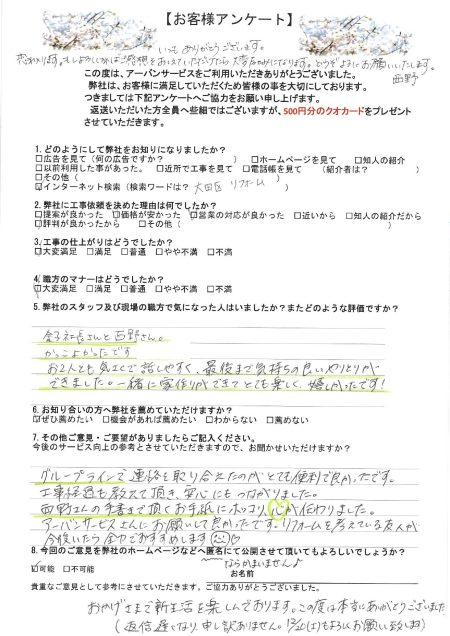 【お客様アンケート】
いつもありがとうございます。
恐れ入ります。もしよろしければご感想をおしえていただけたら大変たすかになります。どうぞよろしくお願いいたします。
西野
この度は、アーバンサービスをご利用いただきありがとうございました。
弊社は、お客様に満足していただくため皆様の事を大切にしております。
つきましては下記アンケートへご協力をお願い申し上げます。
返送いただいた方全員へ些細ではございますが、500円分のクオカードをプレゼント
させていただきます。
1. どのようにして弊社をお知りになりましたか?
□広告を見て(何の広告ですか? ) □ホームページを見て □知人の紹介
□以前利用した事があった。 □近所で工事を見て □電話帳を見て (紹介者は? )
□その他( )
☑インターネット検索(検索ワードは? 大田区 リフォーム )
2. 弊社に工事依頼を決めた理由は何でしたか?
☑提案が良かった ☑価格が安かった ☑営業の対応が良かった □近いから □知人の紹介だから
☑評判が良かったから □その他( )
3. 工事の仕上がりはどうでしたか?
☑大変満足 □満足 □普通 □やや不満 □不満
4. 職方のマナーはどうでしたか?
☑大変満足 □満足 □普通 □やや不満 □不満
5. 弊社のスタッフ及び現場の職方で気になった人はいましたか?またどのような評価ですか?
金子社長さんと西野さん。
かっこよかったです
お2人とも気さくで話しやすく、最後まで気持ちの良いやりとりが
できました。一緒に家作りができてとても楽しく、嬉しかったです!
6. お知り合いの方へ弊社を薦めていただけますか?
☑ぜひ薦めたい □機会があれば薦めたい □わからない □薦めない
7. その他ご意見・ご要望がありましたらご記入ください。
今後のサービス向上の参考とさせていただきますので、お聞かせいただけますか?
グループラインで連絡を取り合えたのがとても便利で良かったです。
工事経過も教えて頂き、安心にもつながりました。
西野さんの手書きで頂くお手紙にホッコリ、心が伝わりました。
アーバンサービスさんにお願いして良かったです。リフォームを考えている友人が
今後いたら全力でおすすめします
8. 今回のご意見を弊社のホームページなどへ匿名にて公開させて頂いてもよろしいでしょうか?
☑可能 □不可能
ならかまいません♪
お名前
貴重なご意見として参考にさせていただきます。ご協力ありがとうございました。
おかげさまで新生活を楽しんでおります。この度は本当にありがとうございました
(返信遅くなり、申し訳ありません。 もよろしくお願い致します)